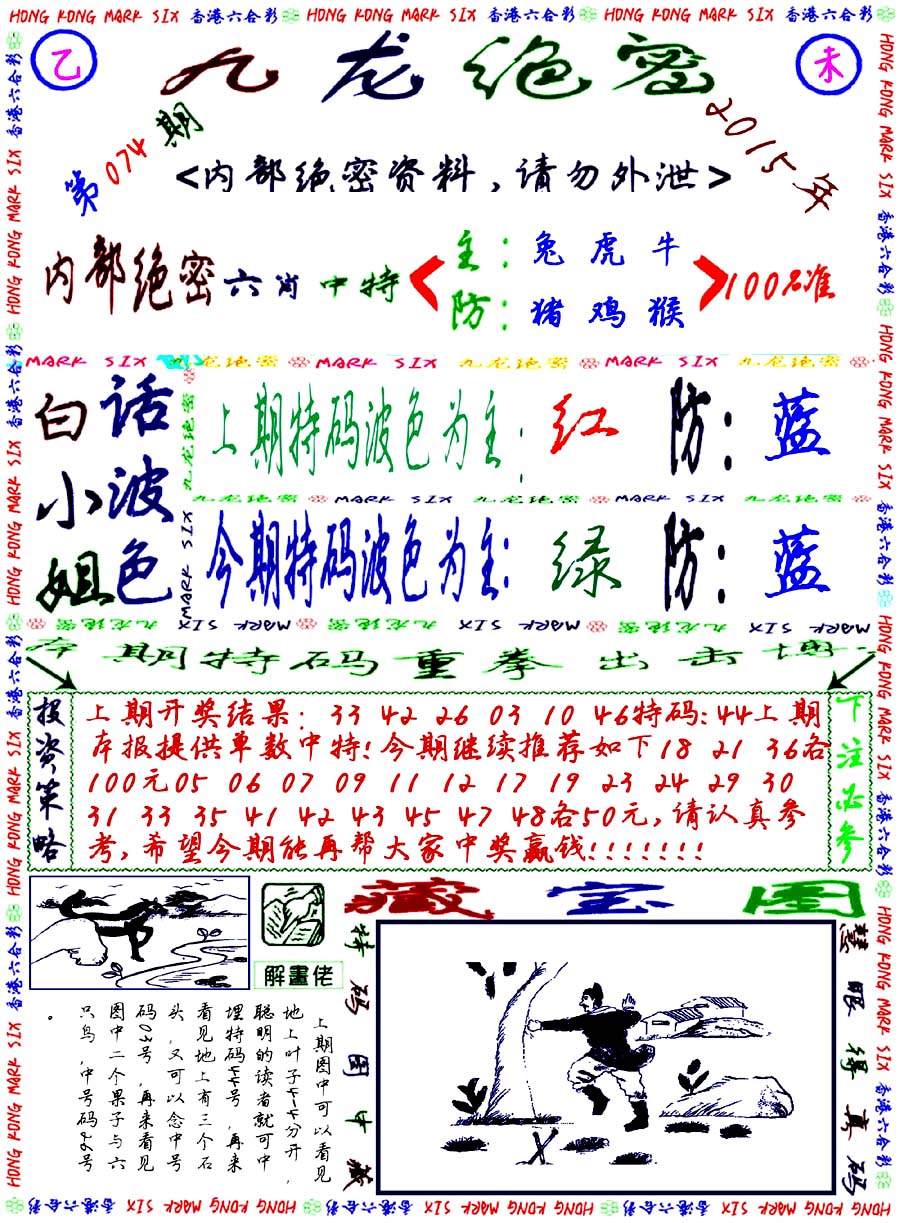 HONG KONG MARK SIX 香港六合彩 HONG KONG MARK SIX 香港六合彩 HONG KONG MARK SIX 香港六合彩
乙
九龙绝密
未
第074期
2015年
<内部绝密资料,请勿外泄>
内部绝密六肖中特
主:兔虎牛
防:猪鸡猴
100%准
MARK SIX 九龙绝密 MARK SIX 九龙绝密 MARK SIX 九龙绝密
白话小波姐色
上期特码波色为主:红 防:蓝
九龙绝密 MARK SIX 九龙绝密 MARK SIX 九龙绝密
今期特码波色为主:绿 防:蓝
九龙绝密 MARK SIX 九龙绝密 MARK SIX 九龙绝密 MARK SIX
本期特码重拳出击博
投资策略
上期开奖结果: 33 42 26 03 10 46特码:44上期
本报提供单数中特!今期继续推荐如下18 21 36各
100元05 06 07 09 11 12 17 19 23 24 29 30
31 33 35 41 42 43 45 47 48各50元,请认真参
考,希望今期能再帮大家中奖赢钱!!!!!!!
下注必参
藏宝图
解畫佬
特码图中藏
慧眼得真码
上期图中可以看见,
地上叶子44分开,
聪明的读者就可中
埋特码44号,再来
看见地上有三个石
头,又可以念中号
码03号,再来看见
图中二个果子与六
只鸟,中号码26号
。
HONG KONG MARK SIX 香港六合彩 HONG KONG MARK SIX 香港六合彩 HONG KONG MARK SIX 香港六合彩